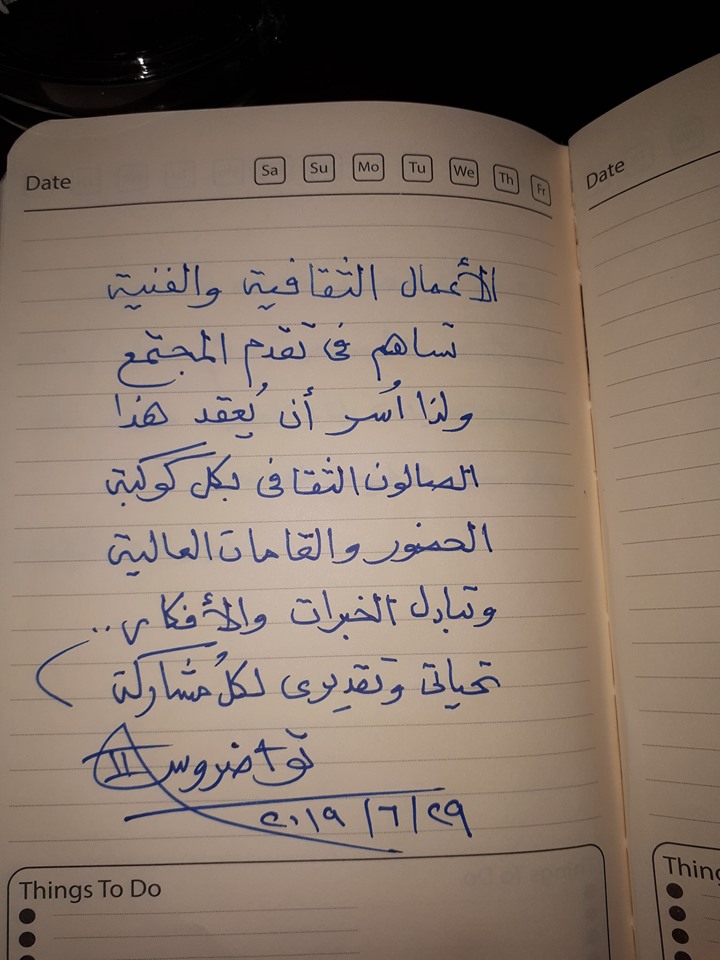 Date
Sa Su Mo Tu We Th Fr
الأعمال الثقافية والفنية
تساهم فى تقدم المجتمع
ولذا أُسر أن يُعقد هذا
الصالون الثقافى بكل كوكبة
الحضور والقامات العالية
وتبادل الخبرات والأفكار..
تحياتى وتقديرى لكل مُشاركة
تواضروس II
٢٩/٦/٢٠١٩
Things To Do
Date